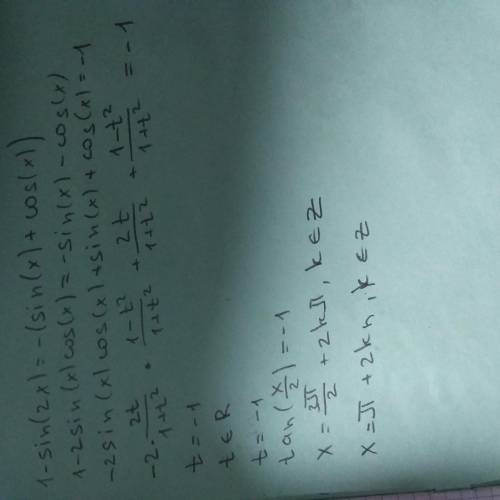 1-sin(2x)=-(sin(x)+cos(x))
1-2sin(x)cos(x)=-sin(x)-cos(x)
-2sin(x)cos(x)+sin(x)+cos(x)=-1
-2·2t/(1+t²)·(1-t²)/(1+t²)+2t/(1+t²)+(1-t²)/(1+t²)=-1
t=-1
t∈R
t=-1
tan(x/2)=-1
x=3π/2+2kπ, k∈Z
x=π+2kπ, k∈Z